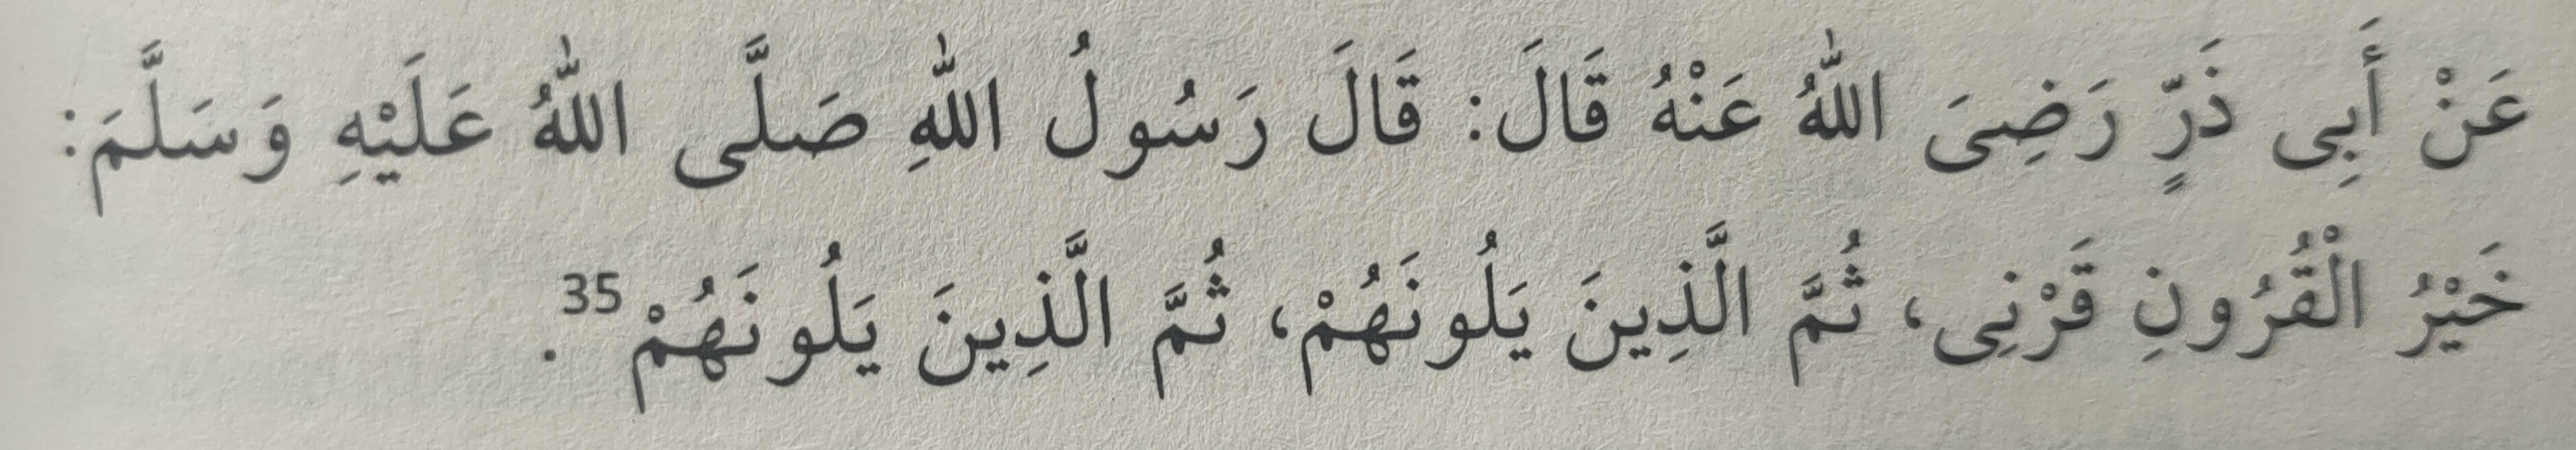 عَنْ أَبِى ذَرٍّ رَضِىَ اللهُ عَنْهُ قَالَ: قَالَ رَسُولُ اللهِ صَلَّى اللهُ عَلَيْهِ وَسَلَّمَ:
خَيْرُ الْقُرُونِ قَرْنِى، ثُمَّ الَّذِينَ يَلُونَهُمْ، ثُمَّ الَّذِينَ يَلُونَهُمْ35.